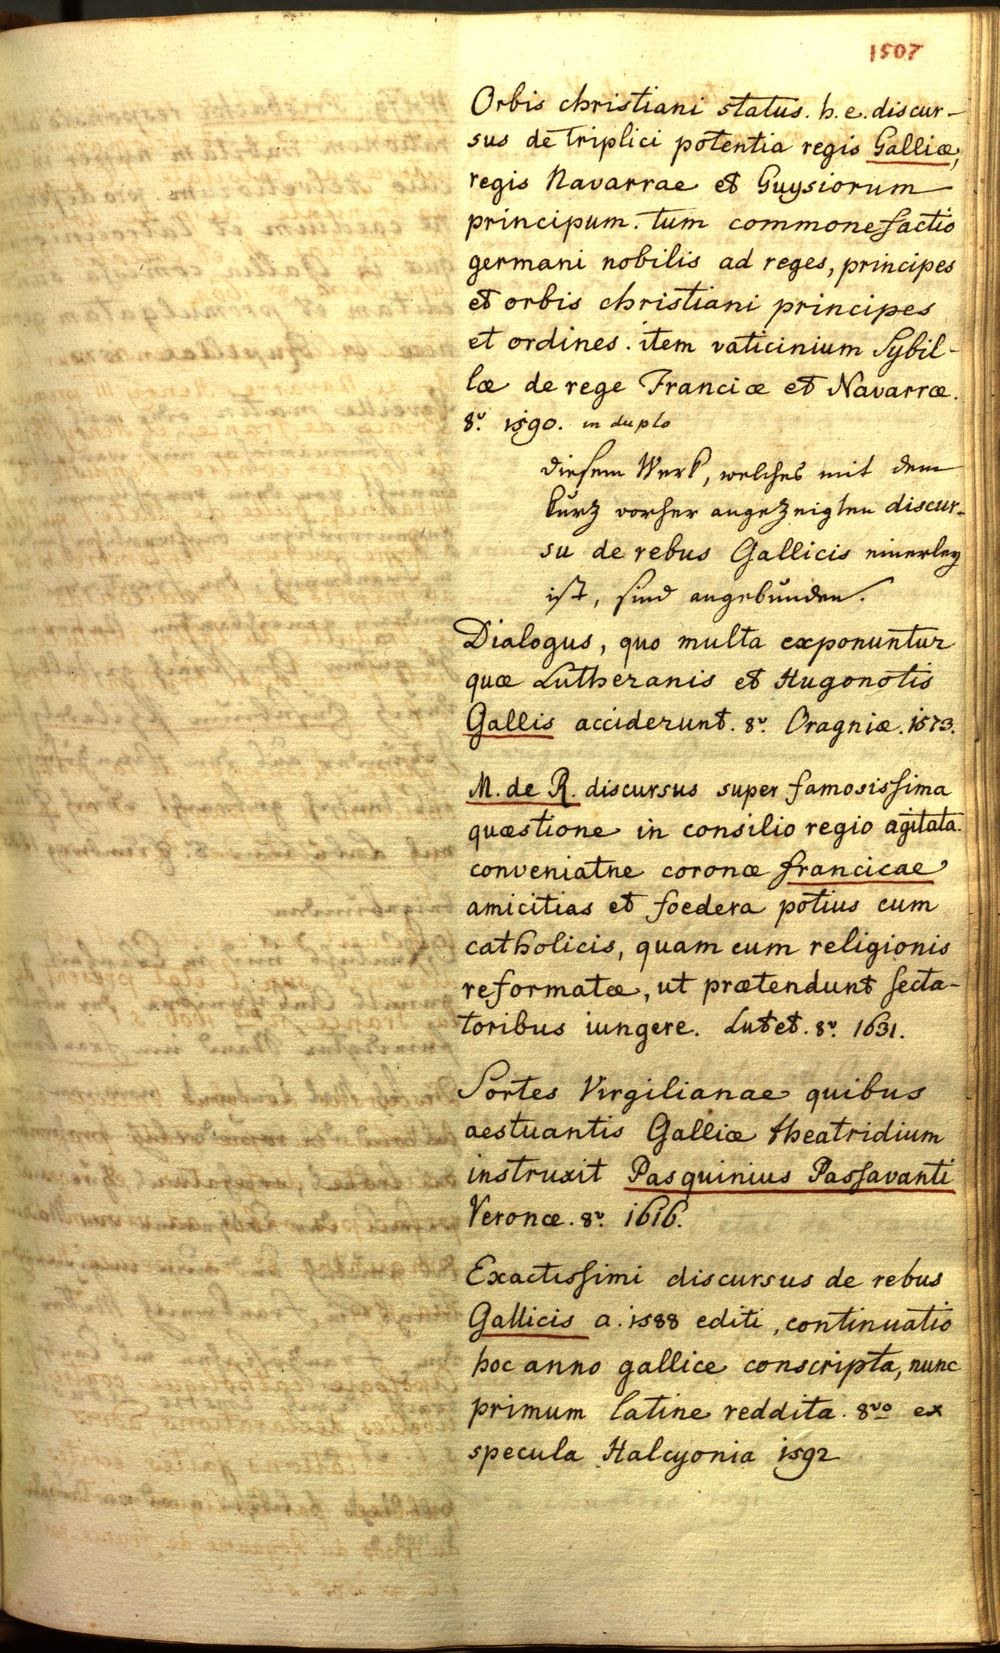 1507
Orbis christiani status. h. e. discur-
sus de triplici potentia regis Galliæ,
regis Navarrae et Guysiorum
principum. tum commonefactio
germani nobilis ad reges, principes
et orbis christiani principes
et ordines. item vaticinium Sybil-
læ de rege Franciæ et Navarræ.
8v. 1590. in duplo
diesem Werk, welches mit dem
kurz vorher angezeigten discur-
su de rebus Gallicis einerley
ist, sind angebunden.
Dialogus, quo multa exponuntur
quæ Lutheranis et Hugonotis
Gallis acciderunt. 8v. Oragniæ. 1573.
M. de R. discursus super famosissima
quæstione in consilio regio agitata.
conveniatne coronæ francicae
amicitias et foedera potius cum
catholicis, quam cum religionis
reformatæ, ut prætendunt secta-
toribus iungere. Lutet. 8v. 1631.
Sortes Virgilianae quibus
aestuantis Galliæ theatridium
instruxit Pasquinius Passavanti
Veronæ. 8v. 1616.
Exactissimi discursus de rebus
Gallicis a. 1588 editi, continuatio
hoc anno gallice conscripta, nunc
primum latine reddita. 8vo ex
specula Halcyonia 1592